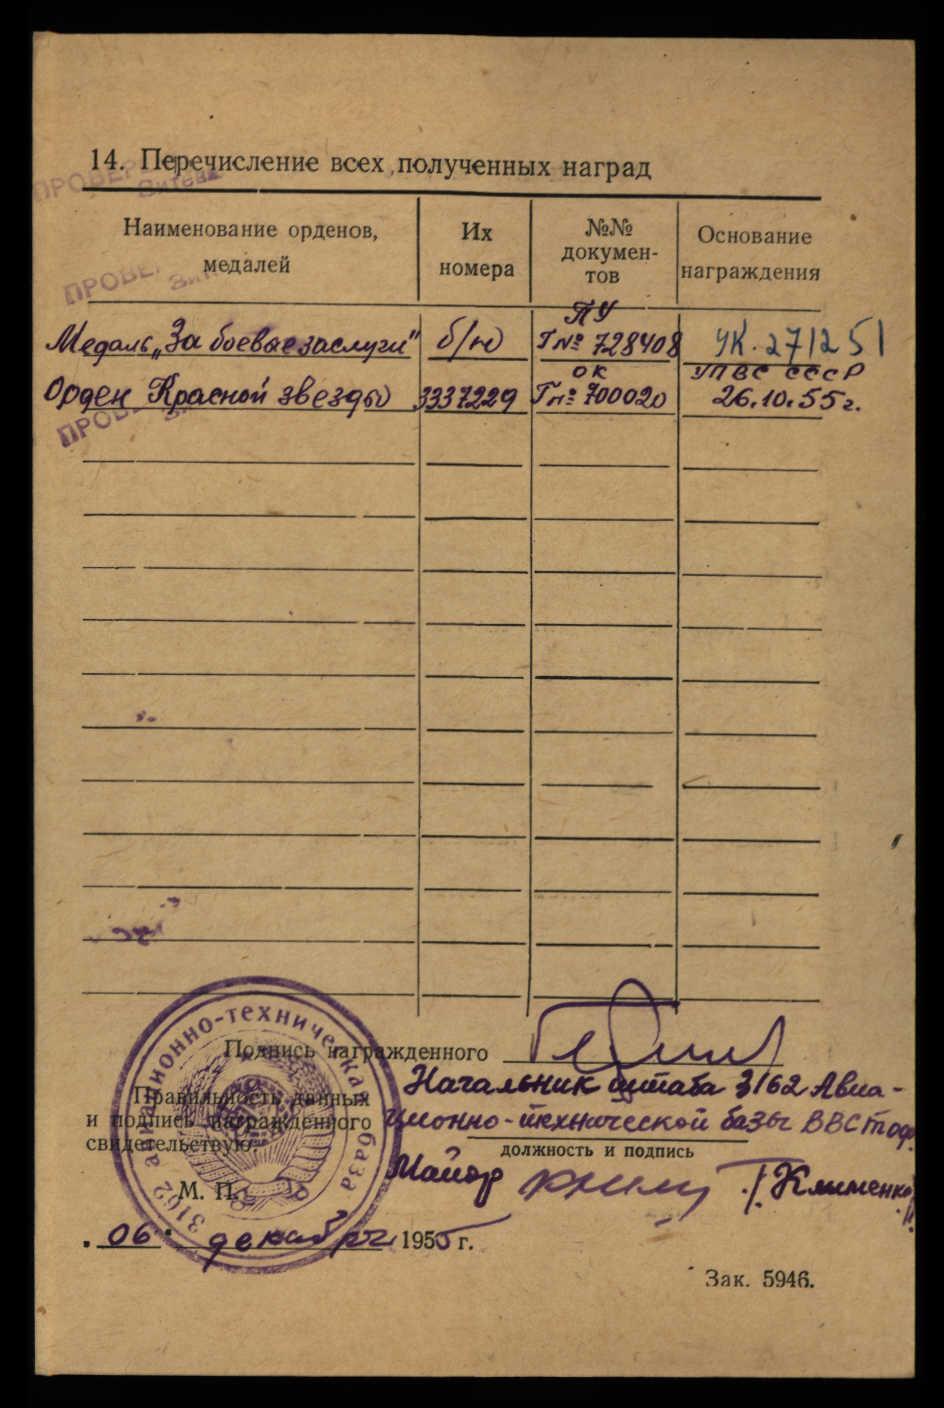 14. Перечисление всех полученных наград
Наименование орденов, медалей
Их номера
№№ докумен-тов
Основание награждения
ПУ
Медаль „За боевые заслуги" б/н Г№ 728408 УК. 271251
ОК УПВС СССР
Орден Красной звезды 3337229 Г№ 700020 26.10.55г.
Подпись награжденного
Начальник штаба 3162 Авиа-
Правильность данных
и подпись награжденного ционно-технической базы ВВС Тоф
свидетельствую:
должность и подпись
Майор /Клименко/
М. П.
3162 авиационно-техническая база
„06" декабря 1955 г.
Зак. 5946.